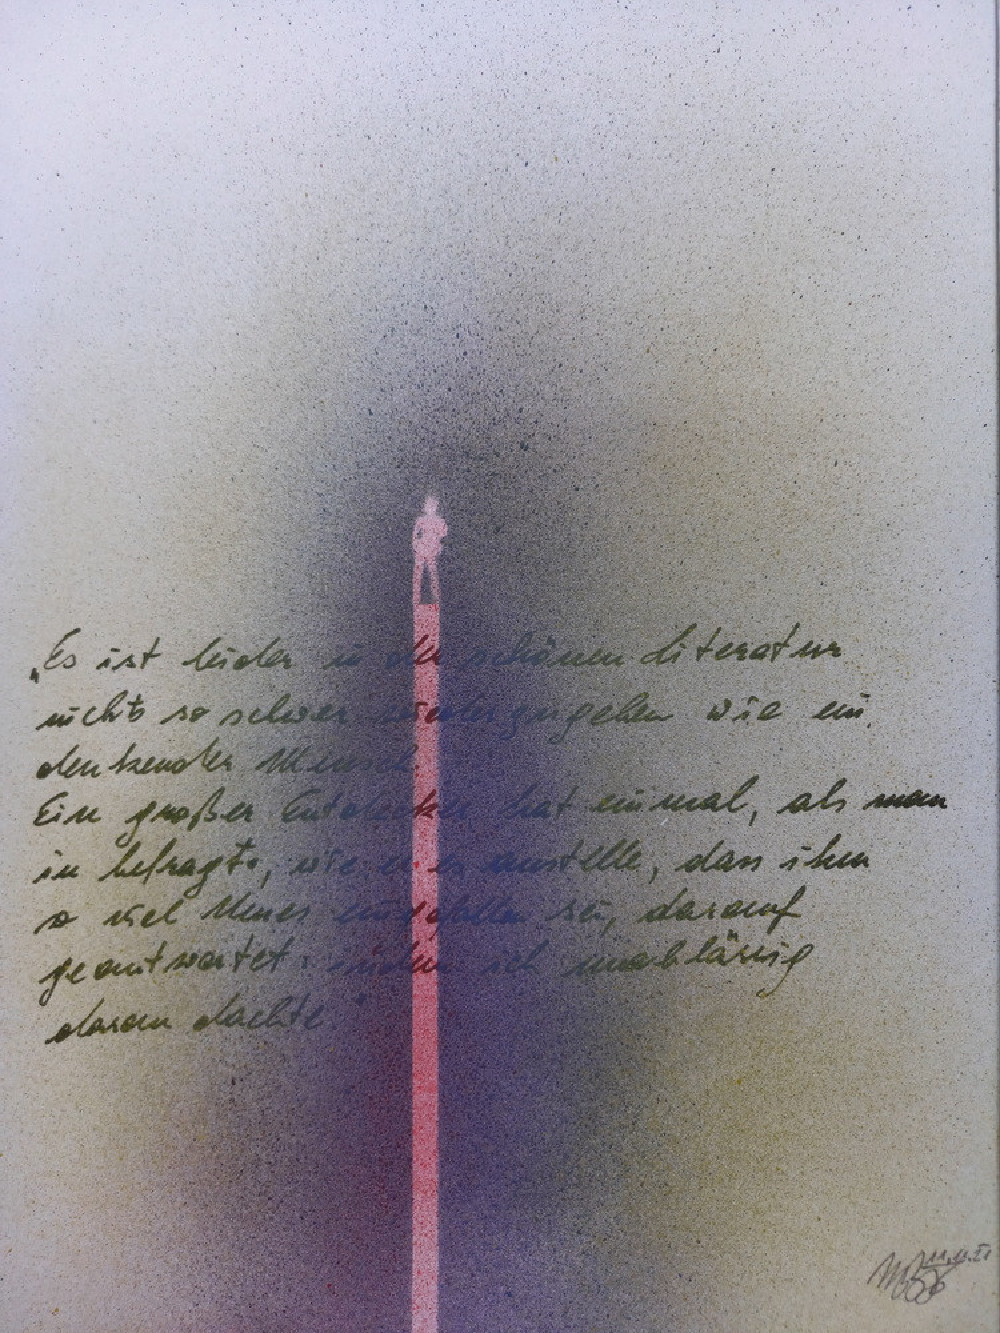 „Es ist leider in der schönen Literatur
nichts so schwer wiederzugeben wie ein
denkender Mensch.
Ein großer Entdecker hat einmal, als man
in befragte, wie er es anstelle, dass ihm
so viel Neues eingefallen sei, darauf
geantwortet: indem ich unablässig
daran dachte."